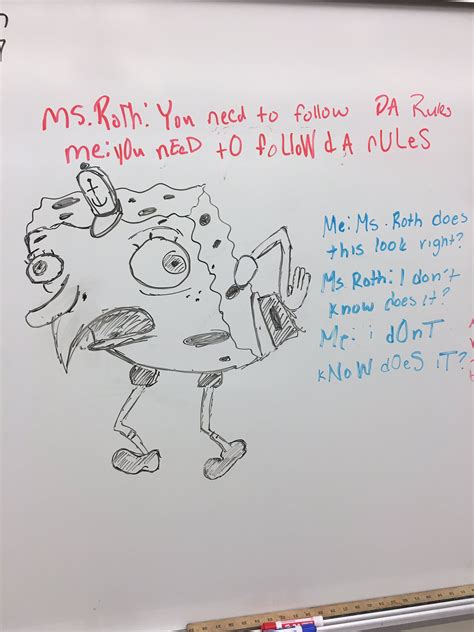 Ms. Roth: You need to follow DA Rules
me: yOU nEED tO foLLOW dA rULeS
Me: Ms. Roth does
this look right?
Ms Roth: I don't
know does it?
Me: i dOnT
kNoW dOeS iT?